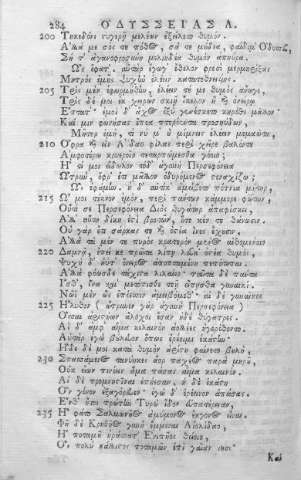 284 ΟΔΥΣΣΕΙΑΣ Λ.
200 Τηκεδόνι στυγερῇ μελέων ἐξείλετο θυμόν·
Ἀλλά με σός τε πόθος, σά τε μήδεα, φαίδιμ' Ὀδυσσεῦ,
Σή τ' ἀγανοφροσύνη μελιηδέα θυμὸν ἀπηύρα.
Ὣς ἔφατ'· αὐτὰρ ἔγωγ' ἔθελον φρεσὶ μερμηρίξας
Μητρὸς ἐμῆς ψυχὴν ἑλέειν κατατεθνηυίης.
205 Τρὶς μὲν ἐφωρμήθην, ἑλέειν τέ με θυμὸς ἀνώγει,
Τρὶς δέ μοι ἐκ χειρῶν σκιῇ εἴκελον ἢ καὶ ὀνείρῳ
Ἔπτατ'· ἐμοὶ δ' ἄχος ὀξὺ γενέσκετο κηρόθι μᾶλλον·
Καί μιν φωνήσας ἔπεα πτερόεντα προσηύδων,
Μῆτερ ἐμή, τί νύ μ' οὐ μίμνεις ἑλέειν μεμαῶτα,
210 Ὄφρα καὶ εἰν Ἀΐδαο φίλας περὶ χεῖρε βαλόντε
Ἀμφοτέρω κρυεροῖο τεταρπώμεσθα γόοιο;
Ἦ τί μοι εἴδωλον τόδ' ἀγαυὴ Περσεφόνεια
Ὤτρυν', ὄφρ' ἔτι μᾶλλον ὀδυρόμενος στεναχίζω;
Ὣς ἐφάμην· ἡ δ' αὐτίκ' ἀμείβετο πότνια μήτηρ,
215 Ὤ μοι τέκνον ἐμόν, περὶ πάντων κάμμορε φωτῶν,
Οὔτι σε Περσεφόνεια Διὸς θυγάτηρ ἀπαφίσκει,
Ἀλλ' αὕτη δίκη ἐστὶ βροτῶν, ὅτε κέν τε θάνωσιν.
Οὐ γὰρ ἔτι σάρκας τε καὶ ὀστέα ἶνες ἔχουσιν,
Ἀλλὰ τὰ μέν τε πυρὸς κρατερὸν μένος αἰθομένοιο
220 Δαμνᾷ, ἐπεί κε πρῶτα λίπῃ λεύκ' ὀστέα θυμός·
Ψυχὴ δ' ἠΰτ' ὄνειρος ἀποπταμένη πεπότηται·
Ἀλλὰ φόωσδε τάχιστα λιλαίεο· ταῦτα δὲ πάντα
Ἴσθ', ἵνα καὶ μετόπισθε τεῇ εἴπῃσθα γυναικί.
Νῶϊ μὲν ὣς ἐπέεσσιν ἀμειβόμεθ'· αἱ δὲ γυναῖκες
225 Ἤλυθον (ὤτρυνεν γὰρ ἀγαυὴ Περσεφόνεια)
Ὅσσαι ἀριστήων ἄλοχοι ἔσαν ἠδὲ θύγατρες.
Αἱ δ' ἀμφ' αἷμα κελαινὸν ἀολλέες ἠγερέθοντο.
Αὐτὰρ ἐγὼ βούλευον ὅπως ἐρέοιμι ἑκάστην·
Ἥδε δέ μοι κατὰ θυμὸν ἀρίστη φαίνετο βουλή,
230 Σπασσάμενος τανύηκες ἄορ παχέος παρὰ μηροῦ,
Οὐκ εἴων πίνειν ἅμα πάσας αἷμα κελαινόν.
Αἱ δὲ προμνηστῖναι ἐπήϊσαν, ἡ δὲ ἑκάστη
Ὃν γόνον ἐξαγόρευεν· ἐγὼ δ' ἐρέεινον ἁπάσας.
Ἔνθ' ἤτοι πρώτην Τυρὼ ἴδον εὐπατέρειαν,
235 Ἣ φάτο Σαλμωνῆος ἀμύμονος ἔκγονος εἶναι.
Φῆ δὲ Κρηθῆος γυνὴ ἔμμεναι Αἰολίδαο,
Ἣ ποταμοῦ ἠράσσατ' Ἐνιπῆος θείοιο,
Ὃς πολὺ κάλλιστος ποταμῶν ἐπὶ γαῖαν ἵησι·
Καί